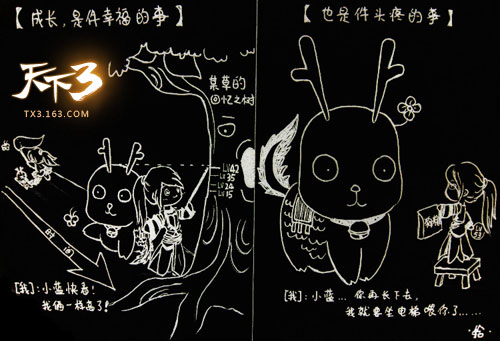 【成长，是件幸福的事】
天下3
TX3.163.COM
某草的
回忆之树
LV42
LV35
LV24
LV15
时间
[我]：小蓝快看！
我俩一样高了！
【也是件头疼的事】
[我]：小蓝…你再长下去，
我就要坐电梯喂你了……